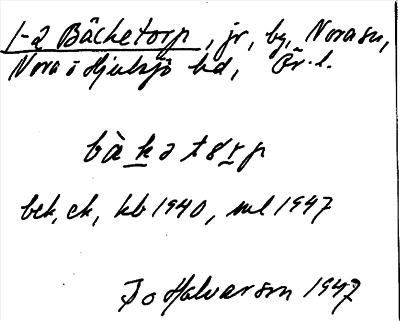 1-2 Bäcketorp, jr, by, Nora sn,
Nora o Hjulsjö hd, Ör. l.
bàkətɷrp
bek, ek, kb 1940, ml 1947
Jo Halvarson 1947